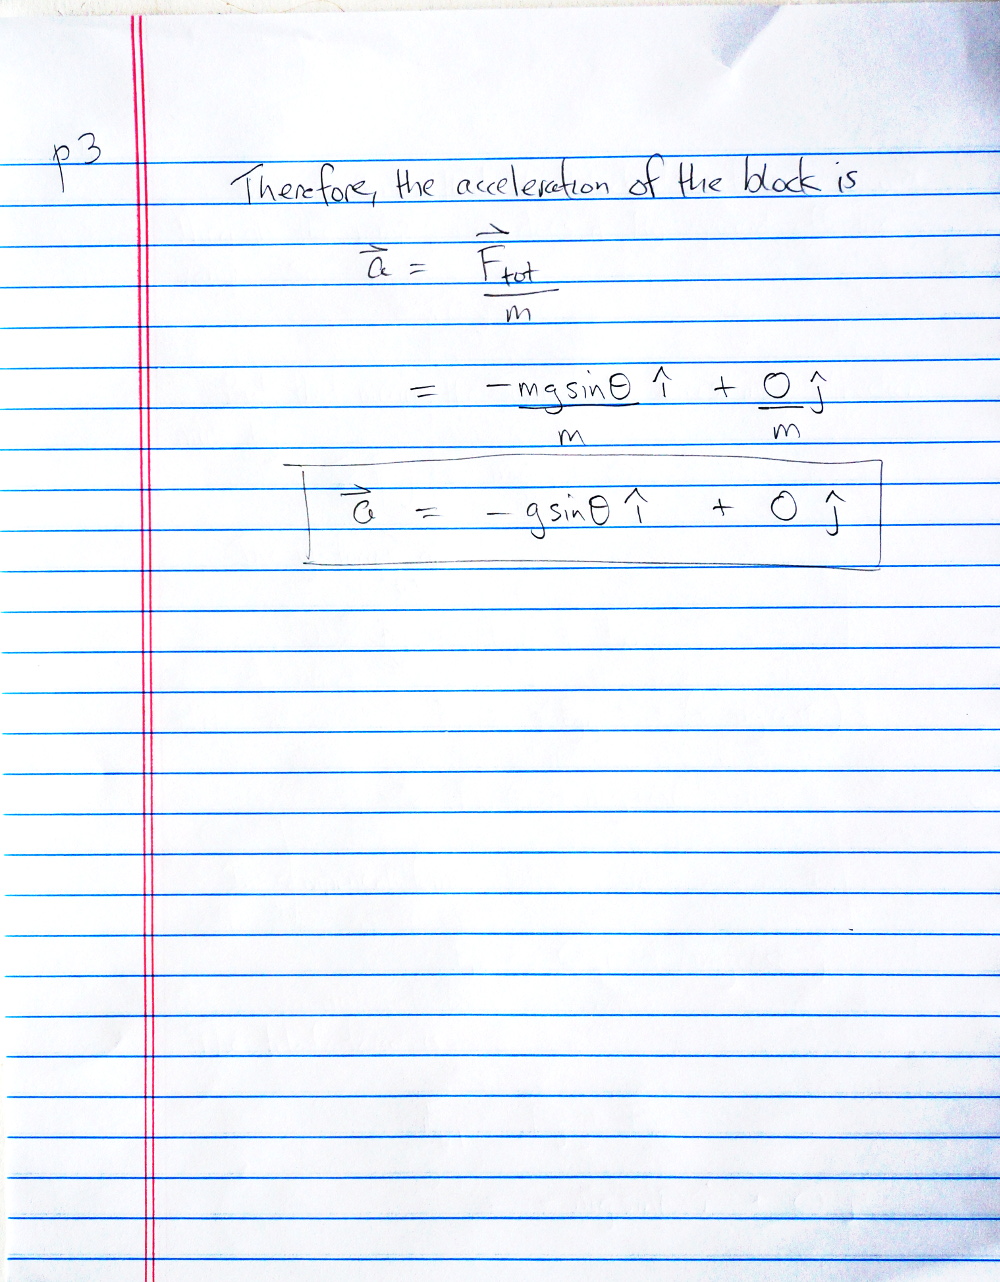 p3
Therefore, the acceleration of the block is
a⃗ = F⃗tot
m
= -mgsinθ î + 0 ĵ
m m
a⃗ = -gsinθ î + 0 ĵ